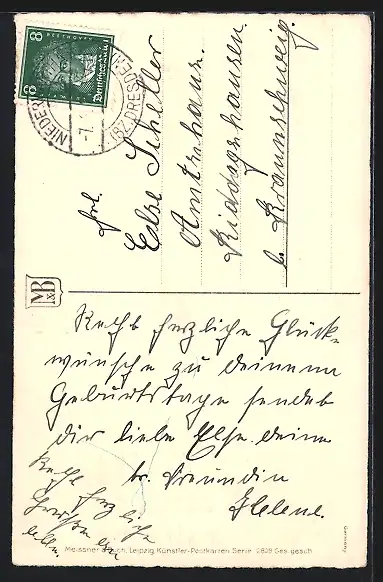 8 BEETHOVEN 8
Deutsches Reich
NIEDER
(BZ. DRESDEN)
-7.
Frl.
Else Scheller
Amtshaus
Riddagshausen
b. Braunschweig.
M&B
Recht herzliche Glück-
wünsche zu deinem
Geburtstage sendet
dir liebe Else deine
tr. Freundin
Helene.
Recht herzliche
Grüsse an
Meissner & Buch, Leipzig Künstler-Postkarten Serie 2828 Ges. gesch.
Germany